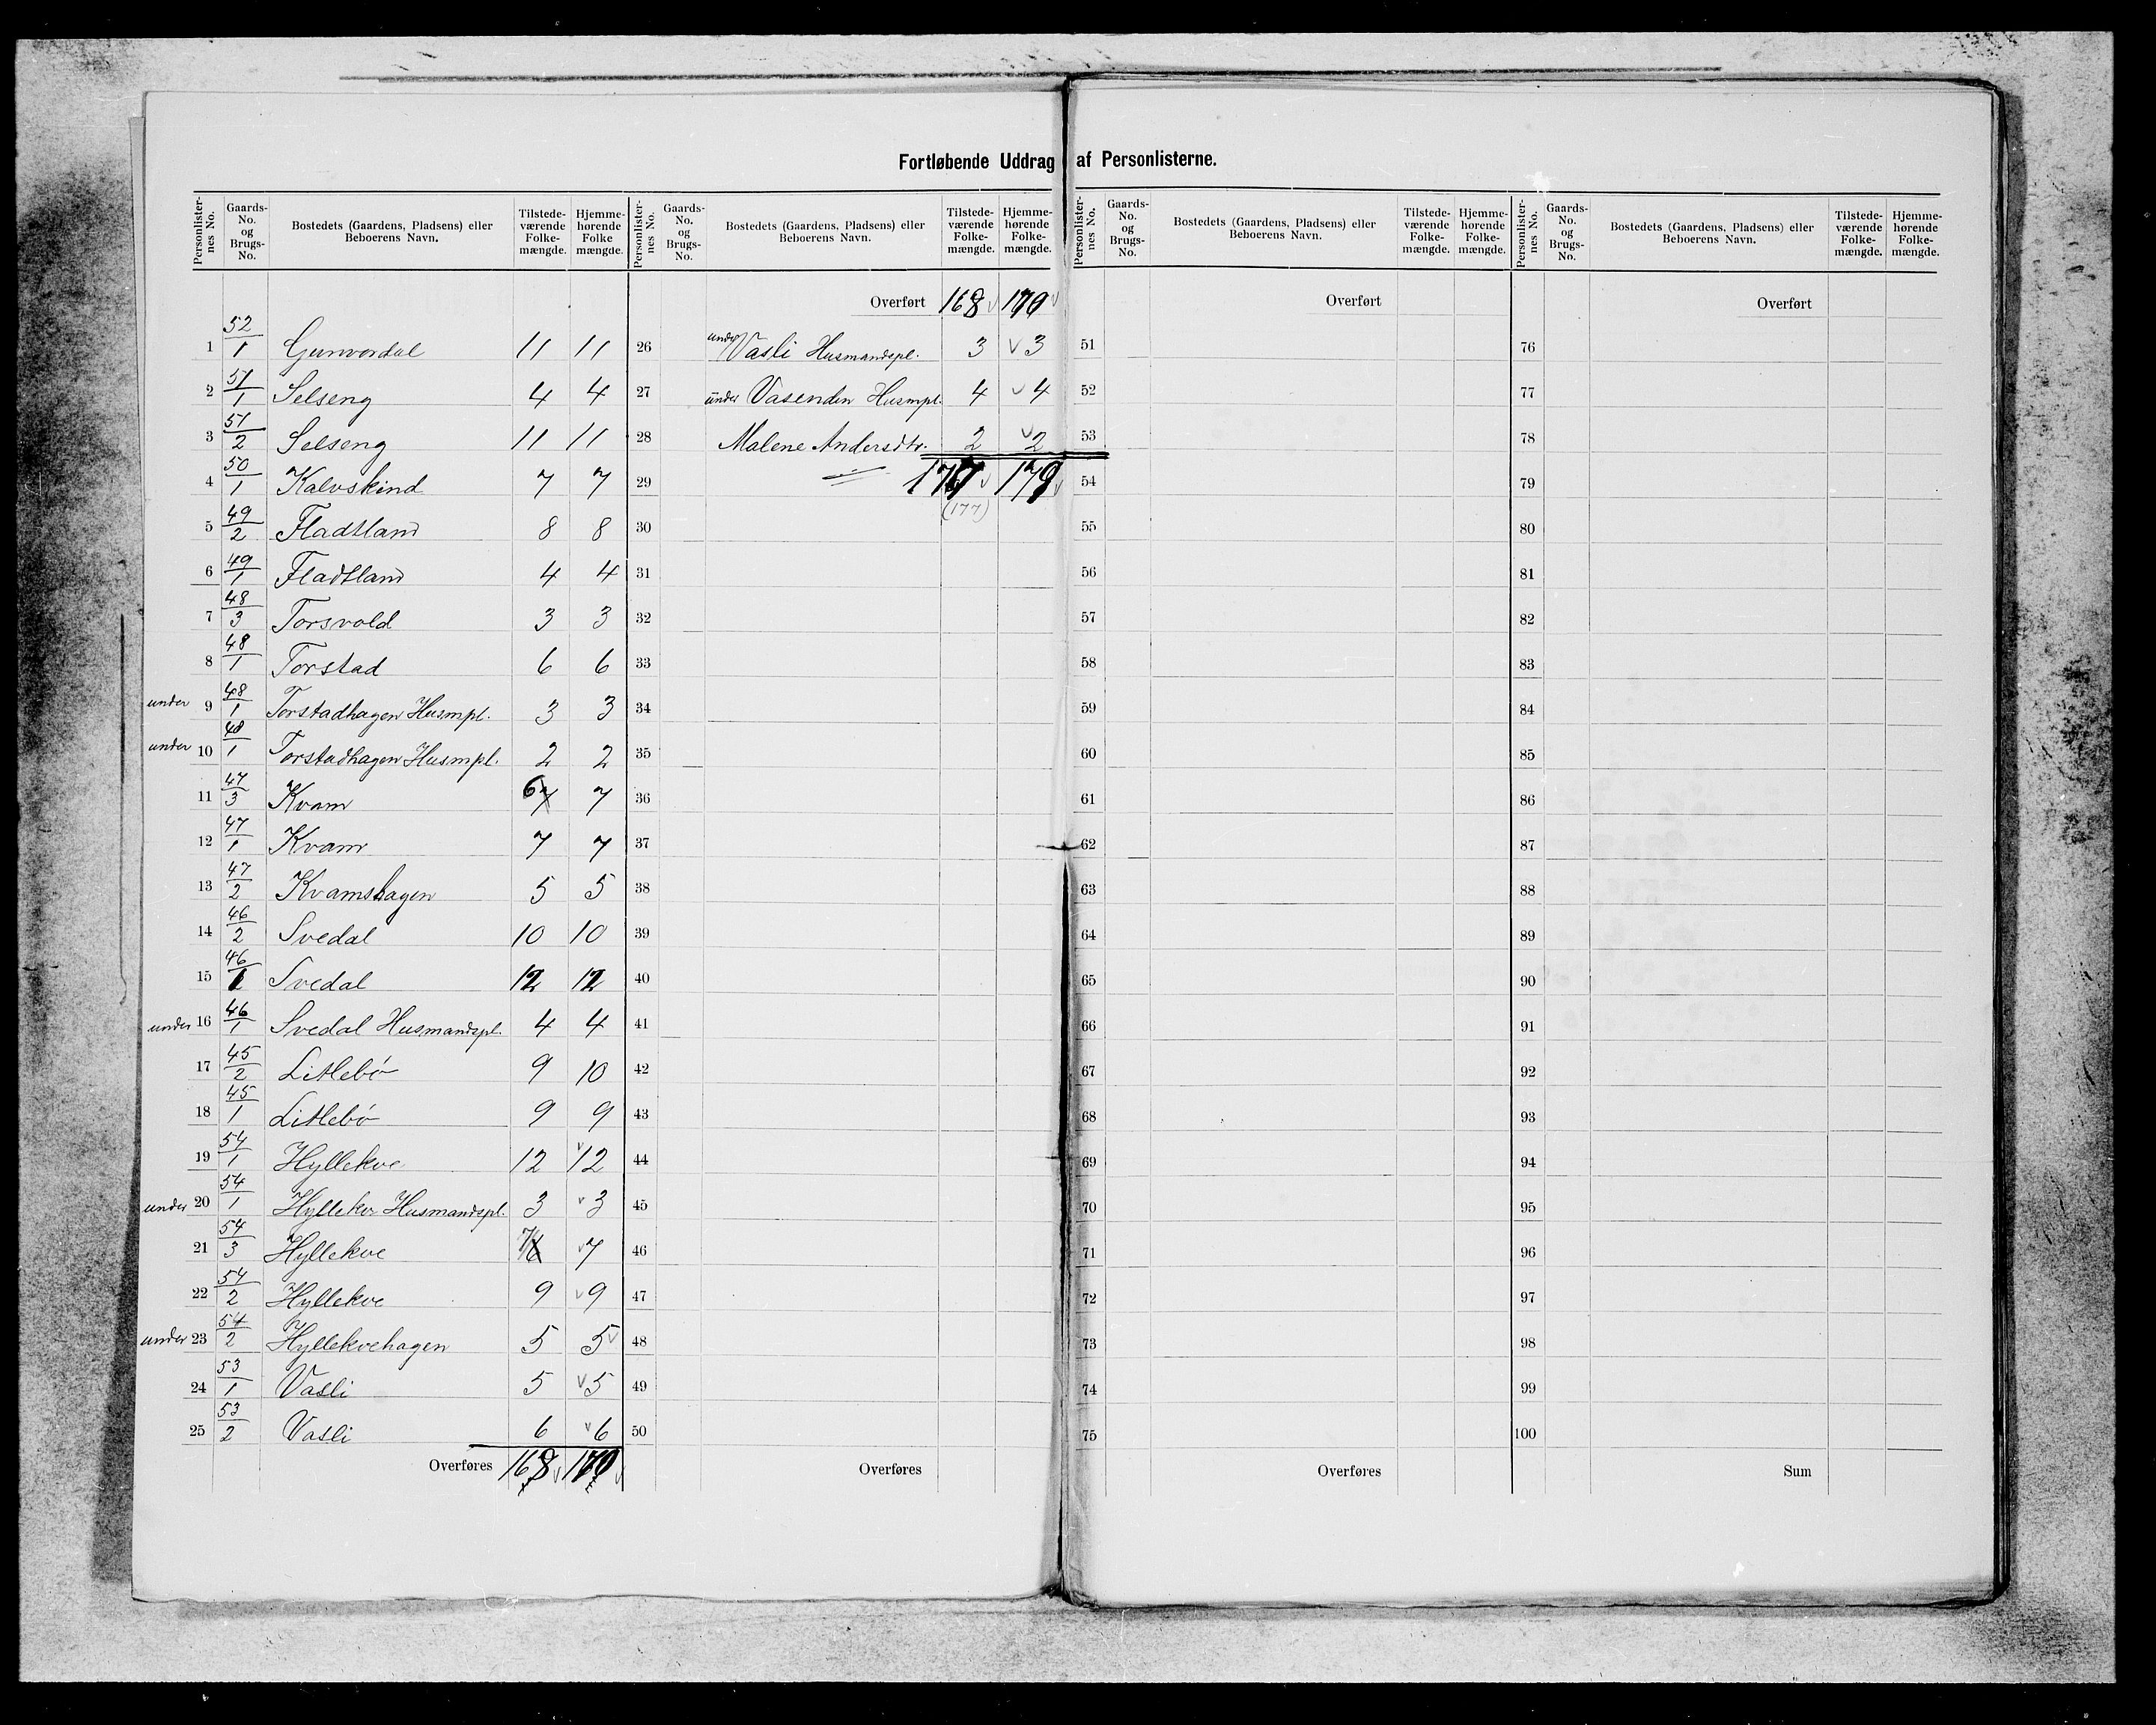 Fortløbende Uddrag af Personlisterne.
Personlister-nes No. | Gaards-No. og Brugs-No. | Bostedets (Gaardens, Pladsens) eller Beboerens Navn. | Tilstede-værende Folke-mængde. | Hjemme-hørende Folke mængde.
1 52/1 Gunvordal 11 11
2 51/1 Selseng 4 4
3 51/2 Selseng 11 11
4 50/1 Kalvskind 7 7
5 49/2 Fladtland 8 8
6 49/1 Fladtland 4 4
7 48/3 Torsvold 3 3
8 48/1 Torstad 6 6
under 9 48/1 Torstadhagen Husmpl. 3 3
under 10 48/1 Torstadhagen Husmpl. 2 2
11 47/3 Kvam 6 7 7
12 47/1 Kvam 7 7
13 47/2 Kvamshagen 5 5
14 46/2 Svedal 10 10
15 46/1 Svedal 12 12
under 16 46/1 Svedal Husmandspl. 4 4
17 45/2 Litlebø 9 10
18 45/1 Litlebø 9 9
19 54/1 Hyllekve 12 12
under 20 54/1 Hyllekve Husmandspl. 3 3
21 54/3 Hyllekve 7 6 7
22 54/2 Hyllekve 9 9
under 23 54/2 Hyllekvehagen 5 5
24 53/1 Vasli 5 5
25 53/2 Vasli 6 6
Overføres 168 170
Personlister-nes No. | Gaards-No. og Brugs-No. | Bostedets (Gaardens, Pladsens) eller Beboerens Navn. | Tilstede-værende Folke-mængde. | Hjemme-hørende Folke-mængde.
Overført 168 170
26 under Vasli Husmandspl. 3 3
27 under Vasenden Husmpl. 4 4
28 Malene Andersdtr. 2 2
29 177 179
(177)
30
31
32
33
34
35
36
37
38
39
40
41
42
43
44
45
46
47
48
49
50
Overføres
Personlister-nes No. | Gaards-No. og Brugs-No. | Bostedets (Gaardens, Pladsens) eller Beboerens Navn. | Tilstede-værende Folke-mængde. | Hjemme-hørende Folke-mængde.
Overført
51
52
53
54
55
56
57
58
59
60
61
62
63
64
65
66
67
68
69
70
71
72
73
74
75
Overføres
Personlister-nes No. | Gaards-No. og Brugs-No. | Bostedets (Gaardens, Pladsens) eller Beboerens Navn. | Tilstede-værende Folke-mængde. | Hjemme-hørende Folke-mængde.
Overført
76
77
78
79
80
81
82
83
84
85
86
87
88
89
90
91
92
93
94
95
96
97
98
99
100
Sum